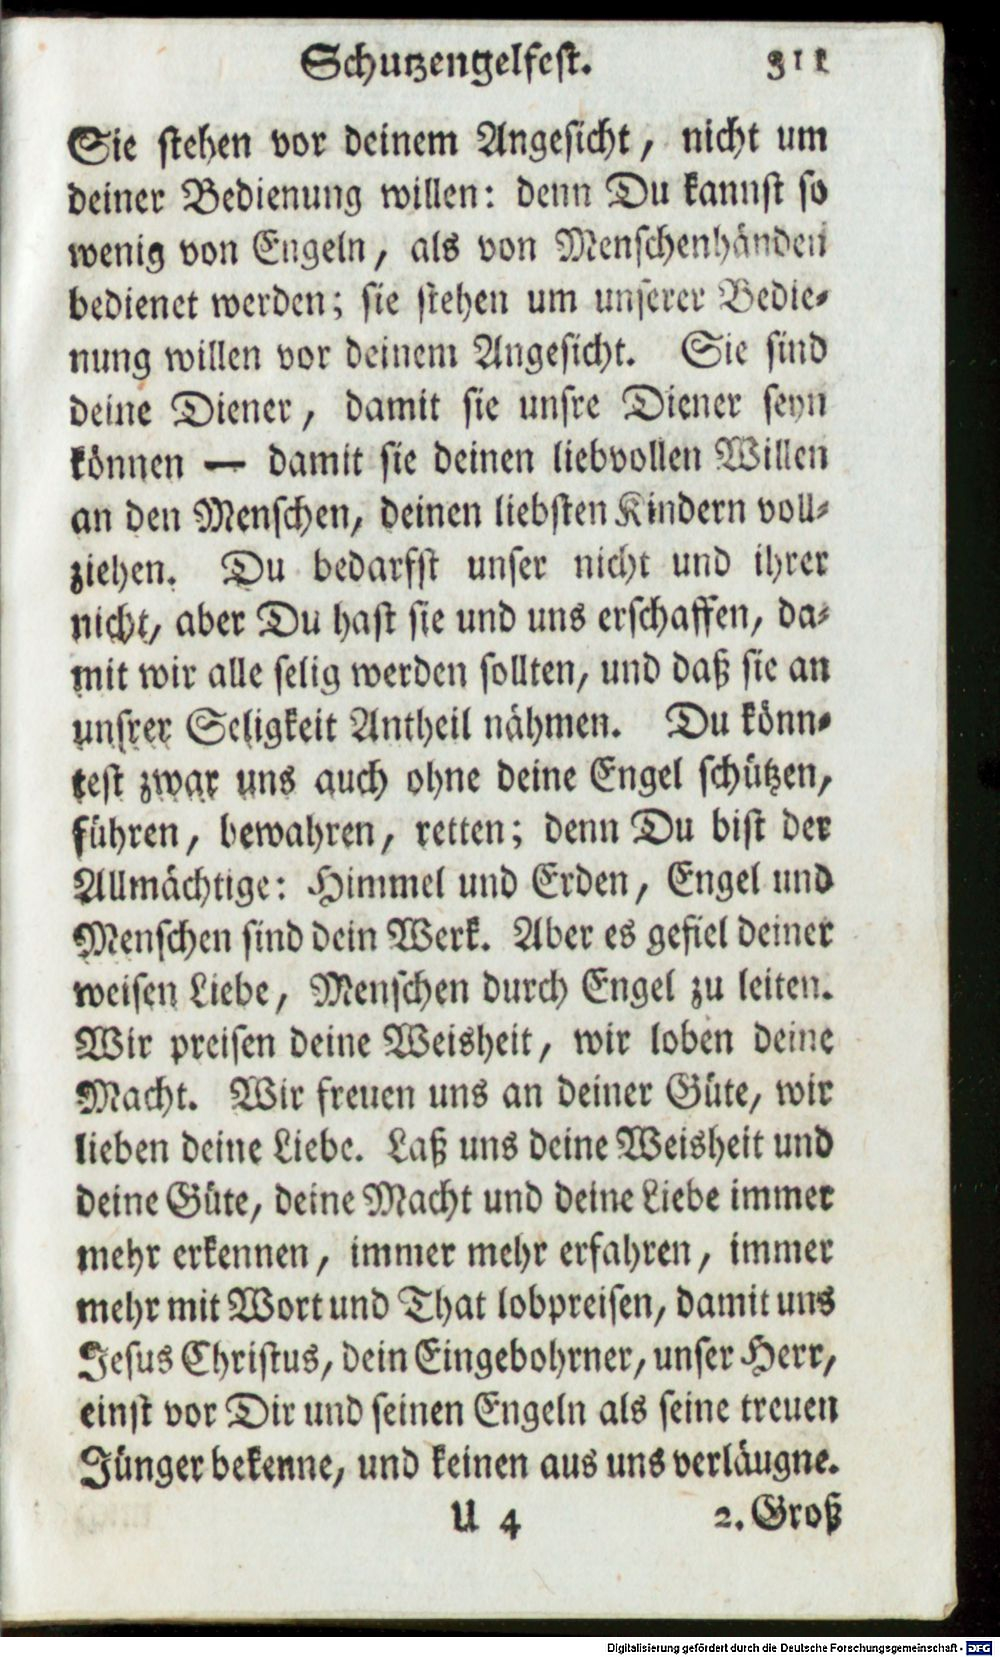 Schutzengelfest. 311
Sie stehen vor deinem Angesicht, nicht um
deiner Bedienung willen: denn Du kannst so
wenig von Engeln, als von Menschenhänden
bedienet werden; sie stehen um unserer Bedie-
nung willen vor deinem Angesicht. Sie sind
deine Diener, damit sie unsre Diener seyn
können — damit sie deinen liebvollen Willen
an den Menschen, deinen liebsten Kindern voll-
ziehen. Du bedarfst unser nicht und ihrer
nicht, aber Du hast sie und uns erschaffen, da-
mit wir alle selig werden sollten, und daß sie an
unsrer Seligkeit Antheil nähmen. Du könn-
test zwar uns auch ohne deine Engel schützen,
führen, bewahren, retten; denn Du bist der
Allmächtige: Himmel und Erden, Engel und
Menschen sind dein Werk. Aber es gefiel deiner
weisen Liebe, Menschen durch Engel zu leiten.
Wir preisen deine Weisheit, wir loben deine
Macht. Wir freuen uns an deiner Güte, wir
lieben deine Liebe. Laß uns deine Weisheit und
deine Güte, deine Macht und deine Liebe immer
mehr erkennen, immer mehr erfahren, immer
mehr mit Wort und That lobpreisen, damit uns
Jesus Christus, dein Eingebohrner, unser Herr,
einst vor Dir und seinen Engeln als seine treuen
Jünger bekenne, und keinen aus uns verläugne.
U 4 2. Groß
Digitalisierung gefördert durch die Deutsche Forschungsgemeinschaft - DFG